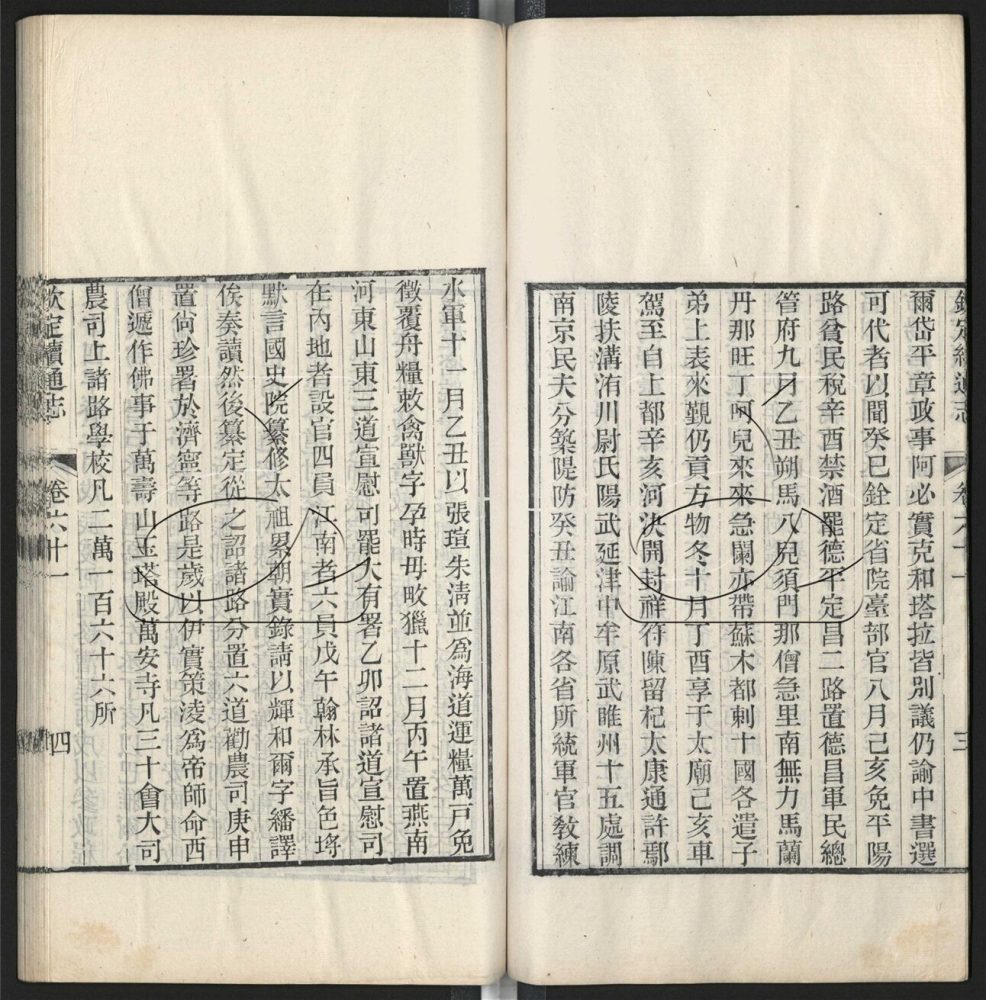 欽定續通志 卷六十一 三
爾岱平章政事阿必實克和塔拉皆別議仍諭中書選
可代者以聞癸巳銓定省院臺部官八月己亥免平陽
路貧民稅辛酉禁酒罷德平定昌二路置德昌軍民總
管府九月乙丑朔馬八兒須門那僧急里南無力馬蘭
丹那旺丁呵兒來來急闌亦帶蘇木都剌十國各遣子
弟上表來覲仍貢方物冬十月丁酉享于太廟己亥車
駕至自上都辛亥河決開封祥符陳留杞太康通許鄢
陵扶溝洧川尉氏陽武延津中牟原武睢州十五處調
南京民夫分築隄防癸丑諭江南各省所統軍官敎練
水軍十一月乙丑以張瑄朱清並爲海道運糧萬戸免
徵覆舟糧敕禽獸字孕時毋畋獵十二月丙午置燕南
河東山東三道宣慰司罷大有署乙卯詔諸道宣慰司
在內地者設官四員江南者六員戊午翰林承旨色埒
默言國史院纂修太祖累朝實錄請以輝和爾字繙譯
俟奏讀然後纂定從之詔諸路分置六道勸農司庚申
置尙珍署於濟寧等路是歲以伊實策淩爲帝師命西
僧遞作佛事于萬壽山玉塔殿萬安寺凡三十會大司
農司上諸路學校凡二萬一百六十六所
欽定續通志 卷六十一 四